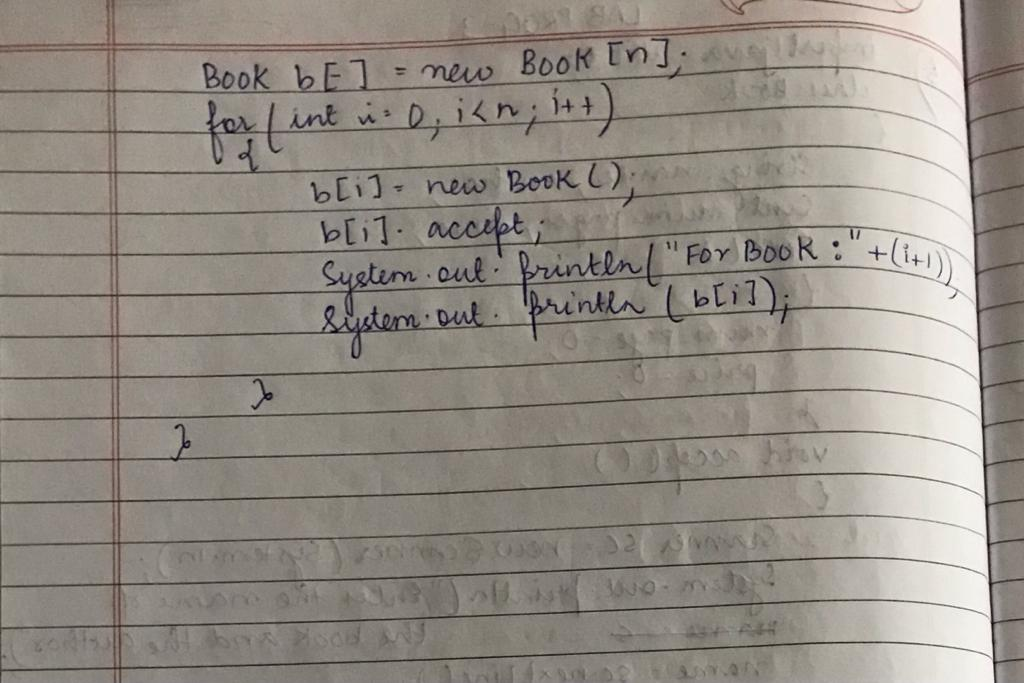 Book b[] = new Book [n];
for (int i = 0, i<n; i++)
{
b[i] = new Book ();
b[i]. accept;
System.out. println("For Book :" +(i+1));
System.out. println (b[i]);
}
}